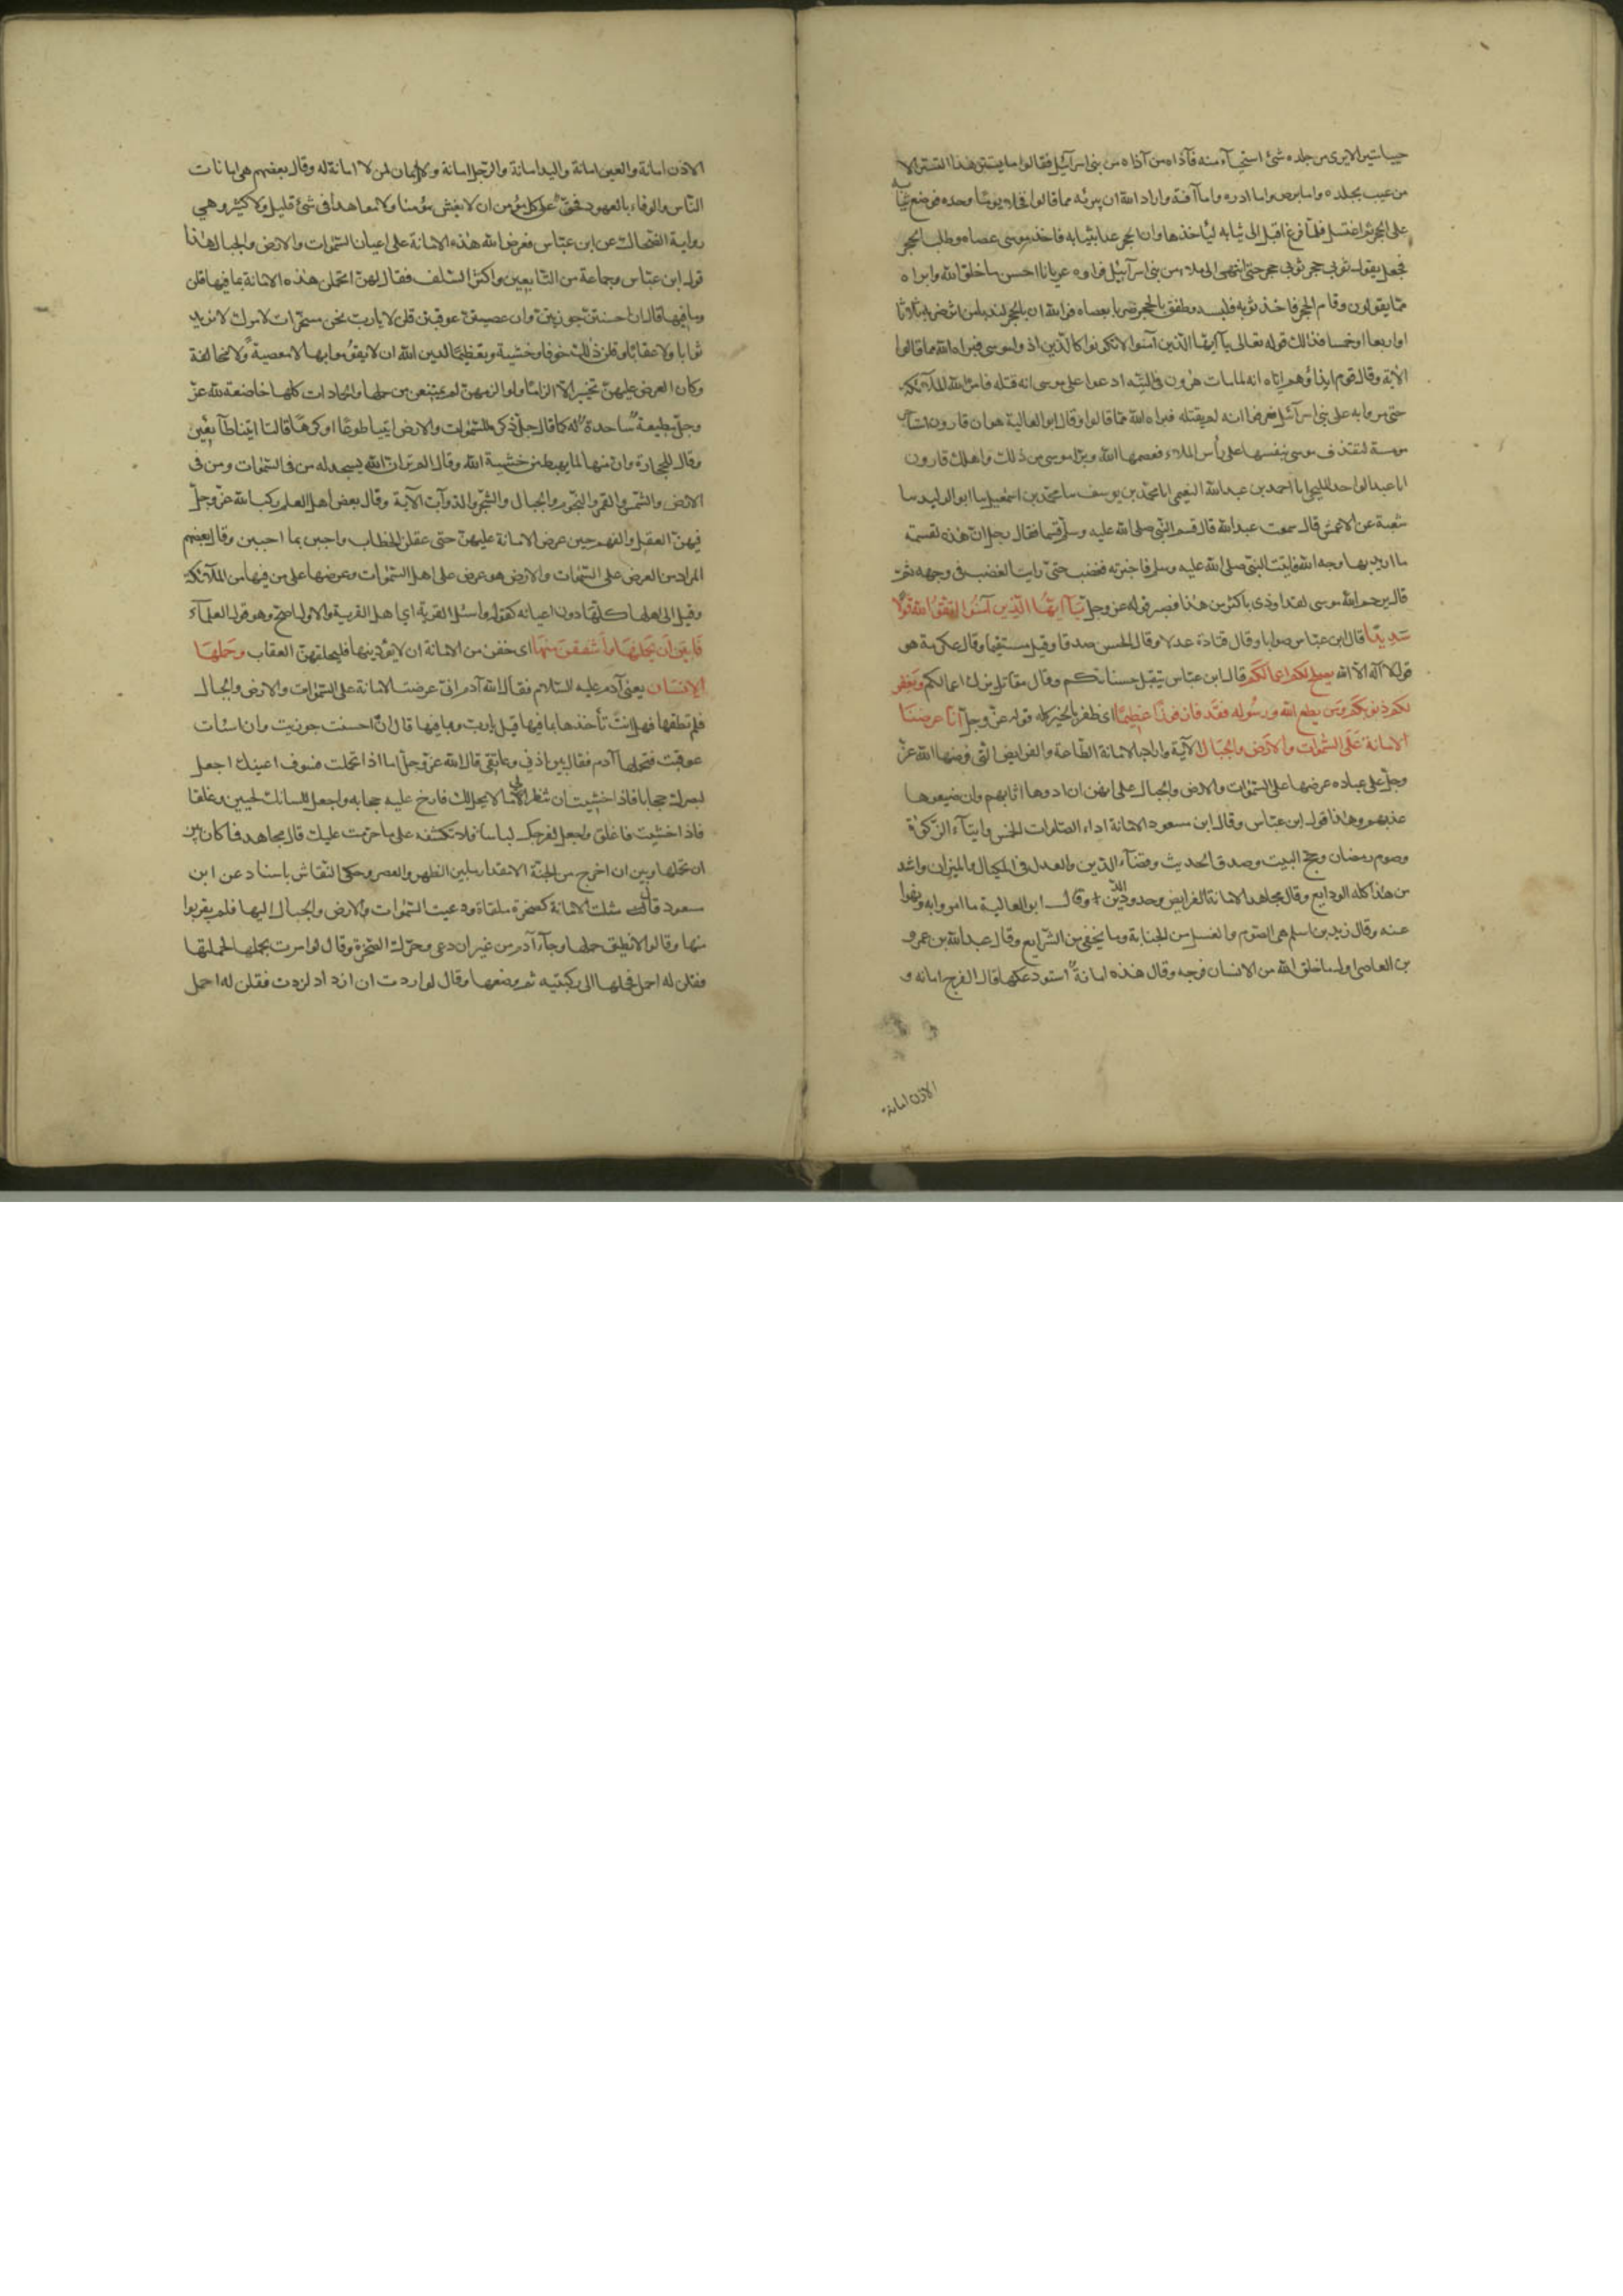 حييا ستيرا لا يرى من جلده شئ استحيآء منه فآذاه من آذاه من بنى اسرآئيل فقالوا ما يستتر هذا التستر الا
من عيب بجلده واما برص واما ادره واما آفة واراد الله ان يبرئه مما قالوا فخلا يومًا وحده فوضع ثيابه
على الحجر ثم اغتسل فلمّا فرغ اقبل الى ثيابه ليأخذها وان الحجر عدا بثيابه فاخذ موسى عصاه وطلب الحجر
فجعل يقول ثوبى حجر ثوبى حجر حتى انتهى الى ملاء من بنى اسرآئيل فراوه عريانا احسن ما خلق الله وابراه
ممّا يقولون وقام الحجر فاخذ ثوبه فلبسه وطفق بالحجر ضربا بعصاه فوالله ان بالحجر لندبا من اثر ضربه ثلاثا
او اربعا او خمسا فذلك قوله تعالى يآ ايّها الّذين آمنوا لا تكونوا كالّذين اذوا موسى فبراه الله مما قالوا
الآية وقال قوم ايذاؤهم اياه انه لما مات هرون فى التيه ادعوا على موسى انه قتله فامر الله الملآئكة
حتى مروا به على بنى اسرآئيل فعرفوا انه لم يقتله فبراه الله ممّا قالوا وقال ابو العالية هو ان قارون استاجر
مومسة لتقذف موسى بنفسها على رأس الملاء فعصمها الله وبرّا موسى من ذلك واهلك قارون
انا عبد الواحد المليحى انا احمد بن عبد الله النعيمى انا محمّد بن يوسف سا محمّد بن اسمعيل سا ابو الوليد سا
شعبة عن الاعمش قال سمعت عبد الله قال قسم النّبى صلى الله عليه وسلّم قسما فقال رجل انّ هذه لقسمة
ما اريد بها وجه الله فاتيت النبىّ صلى الله عليه وسلم فاخبرته فغضب حتىّ رايت الغضب فى وجهه ثمّ
قال يرحم الله موسى لقد اوذى باكثر من هذا فصبر قوله عز وجلّ يَآ ايّهَا الّذِين آمَنُوا اتّقُوا الله قَولًا
سَدِيدًا قال ابن عبّاس صوابا وقال قتادة عدلا وقال الحسن صدقا وقيل مستقيما وقال عكرمة هو
قول لا آله الّا الله يصلح لكم اعمالكم قال ابن عبّاس يتقبّل حسناتكم وقال مقاتل يزك اعمالكم ويغفر
لكم ذنوبكم ومن يطع الله ورسُوله فقَد فاز فوزًا عظِيمًا اى ظفر بالخير كله قوله عزّ وجلّ انّا عرضنا
الامانة عَلَى السّمٰوات والارض والجبال الآية واراد بالامانة الطّاعة والفرايض الّتى فرضها الله عزّ
وجلّ على عباده عرضها على السّمٰوات والارض والجبال على انهن ان ادوها اثابهم وان ضيعوها
عذبهم وهذا قول ابن عبّاس وقال ابن مسعود الامانة اداء الصّلوات الخمس وايتآء الزّكوٰة
وصوم رمضان وحج البيت وصدق الحديث وقضآء الدّين والعدل فى المكيال والميزان واشد
من هذا كله الودايع وقال مجاهد الامانة الفرايض وحدود الدّين + وقال ابو العالية ما امروا به ونهوا
عنه وقال زيد بن اسلم هى الصّوم والغسل من الجنابة وما يخفى من الشّرايع وقال عبد الله بن عمرو
بن العاص اول ما خلق الله من الانسان فرجه وقال هذه امانةً استودعكها قال الفرج امانة و
الاذن امانة
الاذن امانة والعين امانة واليد امانة والرّجل امانة ولا ايمان لمن لا امانة له وقال بعضهم هى امانات
النّاس والوفاء بالعهود فحقّ على كل مؤمن ان لا يغش مؤمنا ولا معاهدا فى شئ قليل ولا كثير وهى
رواية الضّحاك عن ابن عبّاس فعرض الله هذه الامانة على اعيان السّمٰوات والارض والجبال هذا
قول ابن عبّاس وجماعة من التّابعين واكثر السّلف فقال لهنّ اتحملن هذه الامانة بما فيها قلن
وما فيها قال ان احسنتنّ جوزيتنّ وان عصيتنّ عوقبتن قلن لا يا ربّ نحن مسخّرات لامرك لا نريد
ثوابا ولا عقابًا وقلن ذلك خوفا وخشية وتعظيمًا لدين الله ان لا يقوموا بها لا معصيةً ولا مخالفة
وكان العرض عليهنّ تخييرًا لا الزامًا ولو الزمهنّ لم يمتنعن من حملها والجمادات كلها خاضعة لله عزّ
وجلّ مطيعةً ساجدةً له كما قال جلّ ذكره للسّمٰوات والارض ايتيا طوعًا او كرهًا قالتا اتينا طآئعين
وقال للحجارة وان منها لما يهبط من خشية الله وقال الم تر ان الله يسجد له من فى السّمٰوات ومن فى
الارض والشّمس والقمر والنّجوم والجبال والشّجر والدّوآبّ الآية وقال بعض اهل العلم ركب الله عزّ وجلّ
فيهنّ العقل والفهم حين عرض الامانة عليهنّ حتى عقلن الخطاب واجبن بما اجبن وقال بعضهم
المراد من العرض على السّمٰوات والارض هو عرض على اهل السّمٰوات وعرضها على من فيها من الملآئكة
وقيل الى اهلها كلّها دون اعيانه كقوله واسئل القرية اى اهل القرية والاول اصح وهو قول العلمآء
فَابَين ان يحملنهَا واشفقنَ مِنهَا اى خفن من الامانة ان لا يؤدينها فليحلقهنّ العقاب وحملهَا
الانسَان يعنى آدم عليه السّلام فقال الله آدم انّى عرضت الامانة على السّمٰوات والارض والجبال
فلم تطقها فهل انت تأخذها بما فيها قيل يا ربّ وما فيها قال ان احسنت جوزيت وان اسأت
عوقبت فتحملها آدم فقال بين اذنى وعاتقى قال الله عزّ وجلّ اما اذا تحملت فسوف اعينك اجعل
لبصرك حجابا فاذا خشيت ان تنظر الى ما لا يحل لك فارخ عليه حجابه واجعل للسانك لحيين وغلقا
فاذا خشيت فاغلق واجعل لفرجك لباسا فلا تكشفه على ما حرّمت عليك قال مجاهد فما كان بين
ان تحملها وبين ان اخرج من الجنّة الا مقدار ما بين الظهر والعصر وحكى النّقاش باسناد عن ابن
مسعود قال مثلت الامانة كصخرة ملقاة ودعيت السّمٰوات والارض والجبال اليها فلم يقربوا
منها وقالوا لا نطيق حملها وجآء آدم من غير ان دعى وحرّك الصّخرة وقال لو امرت بحملها لحملتها
فقلن له احمل فحملها الى ركبتيه ثم وضعها وقال لو اردت ان ازداد لزدت فقلن له احمل